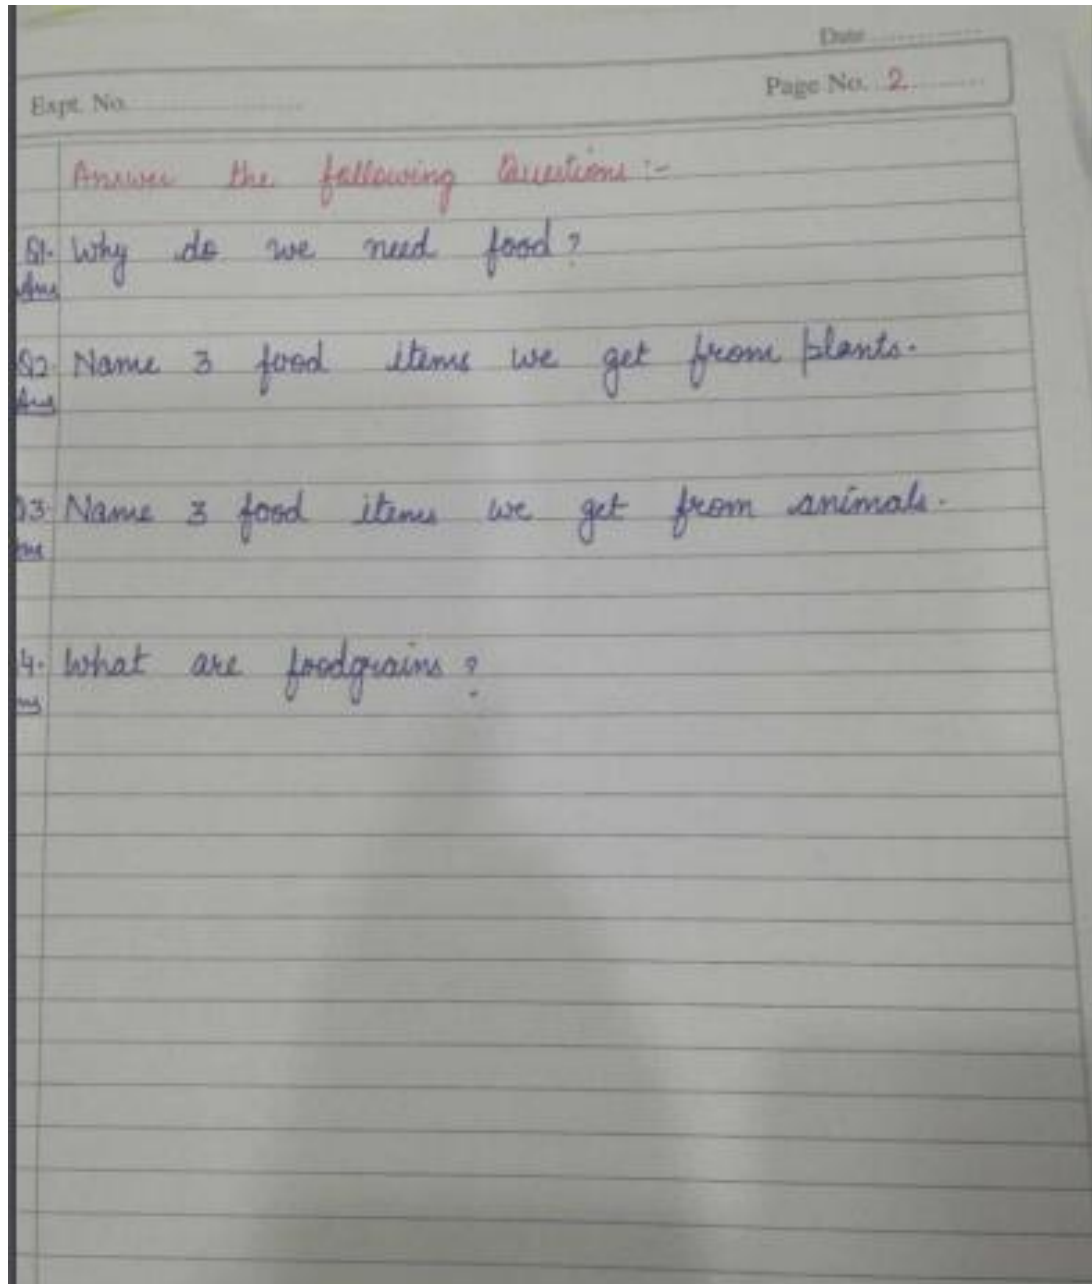 Date
Expt. No.
Page No. 2
Answer the following Questions :-
Q1. Why do we need food?
Ans
Q2. Name 3 food items we get from plants.
Ans
Q3. Name 3 food items we get from animals.
Ans
4. What are foodgrains?
Ans